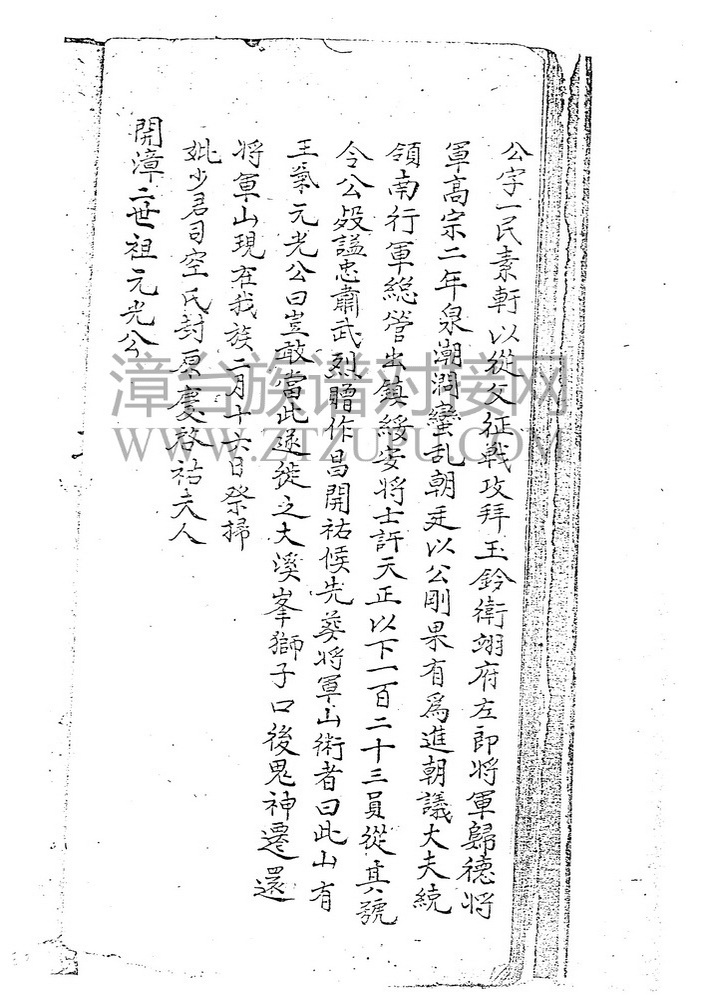 公字一民素軒以從父征戰攻拜玉鈐衛翊府左郎將軍歸德將
軍高宗二年泉潮澗蠻乱朝廷以公剛果有為進朝議大夫統
領南行軍総管出鎮綏安将士許天正以下一百二十三員從其號
令公殁諡忠肅武烈贈作昌開祐候先葬将軍山術者曰此山有
王氣元光公曰豈敢當此遂徙之大溪峯獅子口後鬼神遷還
将軍山現在我族二月十六日祭掃
妣少君司空氏封厚慶啓祐夫人
開漳二世祖元光公
漳台族谱对接网
WWW.ZTZUPU.COM